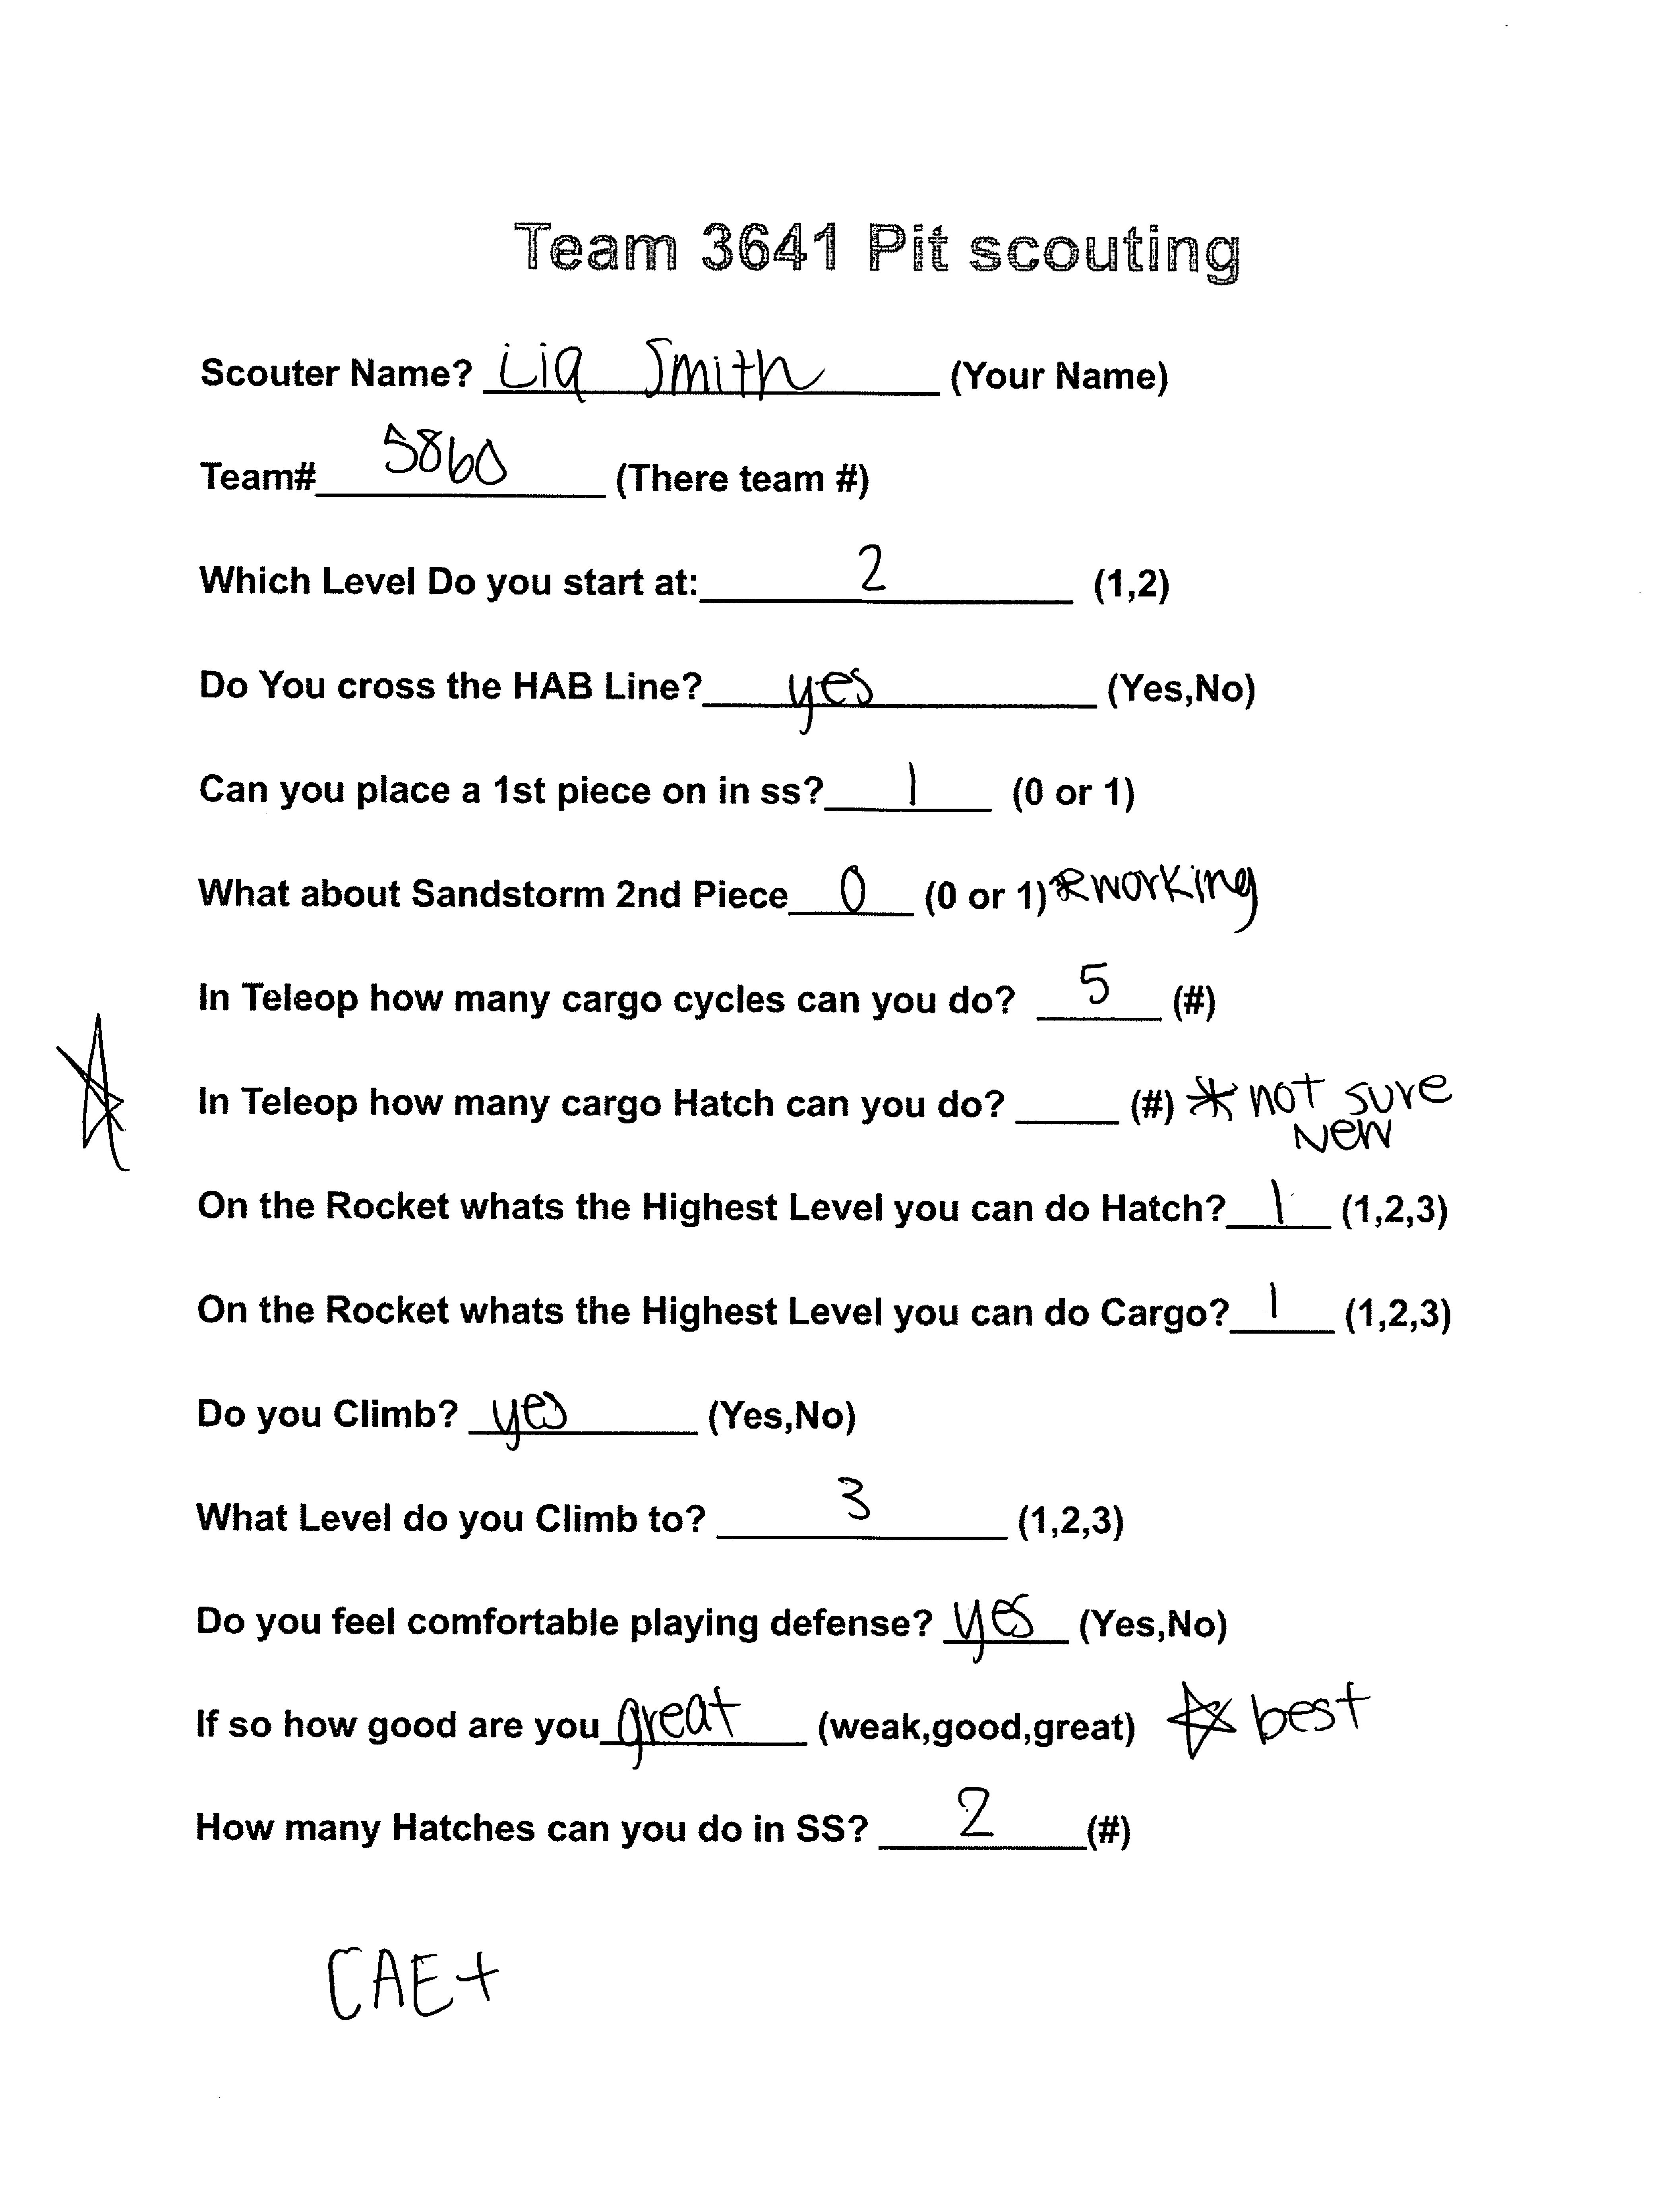 Team 3641 Pit scouting
Scouter Name? Lia Smith (Your Name)
Team# 5860 (There team #)
Which Level Do you start at: 2 (1,2)
Do You cross the HAB Line? yes (Yes,No)
Can you place a 1st piece on in ss? 1 (0 or 1)
What about Sandstorm 2nd Piece 0 (0 or 1) *working
In Teleop how many cargo cycles can you do? 5 (#)
In Teleop how many cargo Hatch can you do? (#) * not sure
New
On the Rocket whats the Highest Level you can do Hatch? 1 (1,2,3)
On the Rocket whats the Highest Level you can do Cargo? 1 (1,2,3)
Do you Climb? yes (Yes,No)
What Level do you Climb to? 3 (1,2,3)
Do you feel comfortable playing defense? yes (Yes,No)
If so how good are you great (weak,good,great) ☆ best
How many Hatches can you do in SS? 2 (#)
CAE+